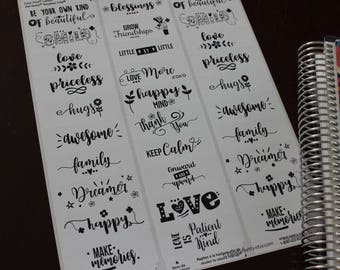 BE YOUR OWN KIND
OF beautiful
SMILE
love
priceless
hugs
awesome
family
Dreamer
happy
MAKE
memories
blessings
GROW
Friendships
LITTLE BY LITTLE
LOVE More
happy
MIND
Thank
You
KEEP Calm
Onward
upward
Love
LOVE IS Patient
Kind
BE YOUR OWN KIND
OF beautiful
love
priceless
hugs
awesome
family
Dreamer
happy
MAKE
memories